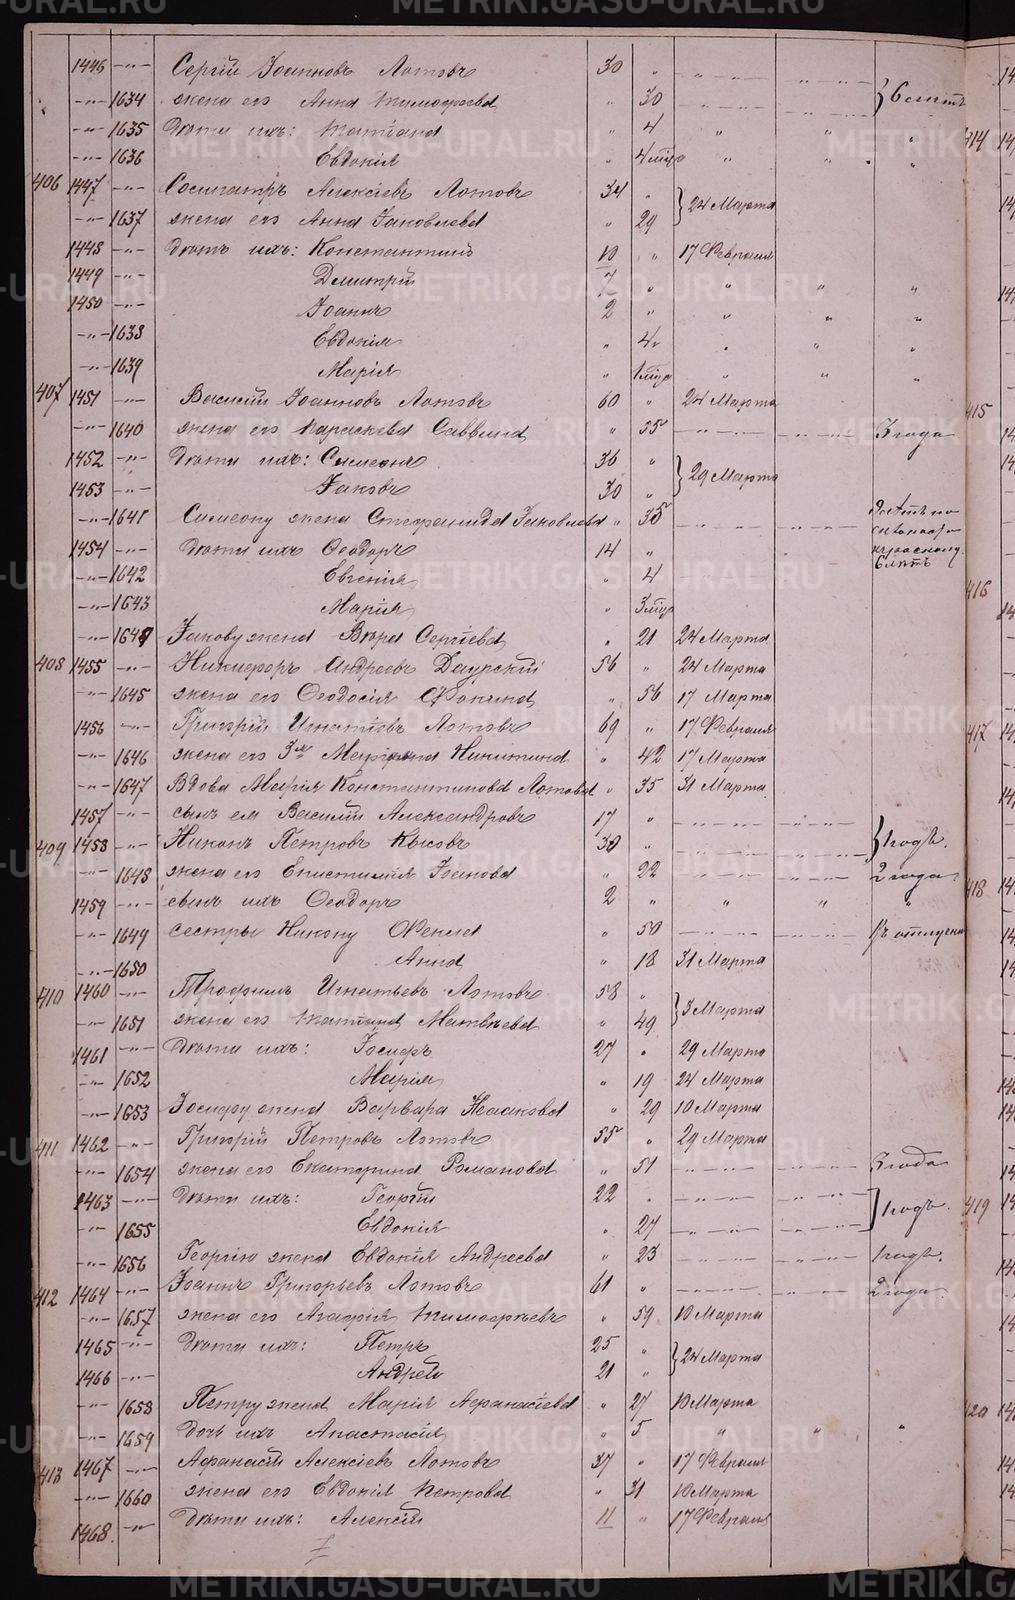 METRIKI.GASO-URAL.RU
1446 -"- Сергій Іоанновъ Лотовъ 30 "
-"- 1634 жена его Анна Тимофеева " 30 } 6 лѣтъ
-"- 1635 Дѣти ихъ: Татіана " 4 " " "
-"- 1636 Евдокія " 4 мѣс " " "
406 1447 -"- Сосипатръ Алексіевъ Лотовъ 34 " } 24 Марта
-"- 1637 жена его Анна Іаковлева " 29
1448 -"- Дѣти ихъ: Константинъ 10 " 17 Февраля
1449 -"- Димитрій 7 " " " "
1450 -"- Іоаннъ 2 " " " "
-"- 1638 Евдокія " 4 " " "
-"- 1639 Марія " 1 мѣс " " "
407 1451 -"- Василій Іоанновъ Лотовъ 60 " 24 Марта
-"- 1640 жена его Параскева Саввина " 55 -"- -"- 3 года
1452 -"- Дѣти ихъ: Симеонъ 36 " } 29 Марта
1453 -"- Іаковъ 30 "
-"- 1641 Симеону жена Стефанида Іаковлева " 35 -"- -"-
1454 -"- Дѣти ихъ Ѳеодоръ 14 "
-"- 1642 Евгенія " 4
-"- 1643 Марія " 3 мѣс
-"- 1644 Іакову жена Вѣра Сергіева " 21 24 Марта
408 1455 -"- Никифоръ Андреевъ Даурскій 56 " 24 Марта
-"- 1645 жена его Ѳеодосія Фокина " 56 17 Марта
1456 -"- Григорій Игнатіевъ Лотовъ 69 " 17 Февраля
-"- 1646 жена его 3я Маріанна Никитина " 42 17 Марта
-"- 1647 Вдова Марія Константинова Лотова " 35 31 Марта
1457 -"- сынъ ея Василій Александровъ 17 " -"- -"-
409 1458 -"- Никонъ Петровъ Кысовъ 30 " -"- -"- } 1 годъ.
-"- 1648 жена его Епистимія Іванова " 22 -"- -"- 2 года
1459 -"- сынъ ихъ Ѳеодоръ 2 " " " "
-"- 1649 сестры Никону Ѳекла " 50 -"- -"-
-"- 1650 Анна " 18 31 Марта
410 1460 -"- Трофимъ Игнатьевъ Лотовъ 58 " } 3 Марта
-"- 1651 жена его Татіана Матвѣева " 49
1461 -"- Дѣти ихъ: Іосифъ 27 " 29 Марта
-"- 1652 Марія " 19 24 Марта
-"- 1653 Іосифу жена Варвара Исаакова " 29 10 Марта
411 1462 -"- Григорій Петровъ Лотовъ 55 " 29 Марта
-"- 1654 жена его Екатерина Романова " 51 -"- -"- 3 года
1463 -"- Дѣти ихъ: Георгій 22 " -"- -"- } 1 годъ.
-"- 1655 Евдокія " 27 -"- -"-
-"- 1656 Георгію жена Евдокія Андреева " 23 -"- -"- 1 годъ.
412 1464 -"- Іоаннъ Григорьевъ Лотовъ 61 " -"- -"- 2 года
-"- 1657 жена его Агафія Тимофѣевъ " 59 10 Марта
1465 -"- Дѣти ихъ: Петръ 25 " } 24 Марта
1466 -"- Андрей 21 "
-"- 1658 Петру жена Марія Афанасіева " 27 10 Марта
-"- 1659 Дочь ихъ Анастасія " 5 " " "
413 1467 -"- Афанасій Алексіевъ Лотовъ 37 " 17 Февраля
-"- 1660 жена его Евдокія Петрова " 31 10 Марта
1468 -"- Дѣти ихъ: Алексій 11 " 17 Февраля
414
415
416
417
418
419
420